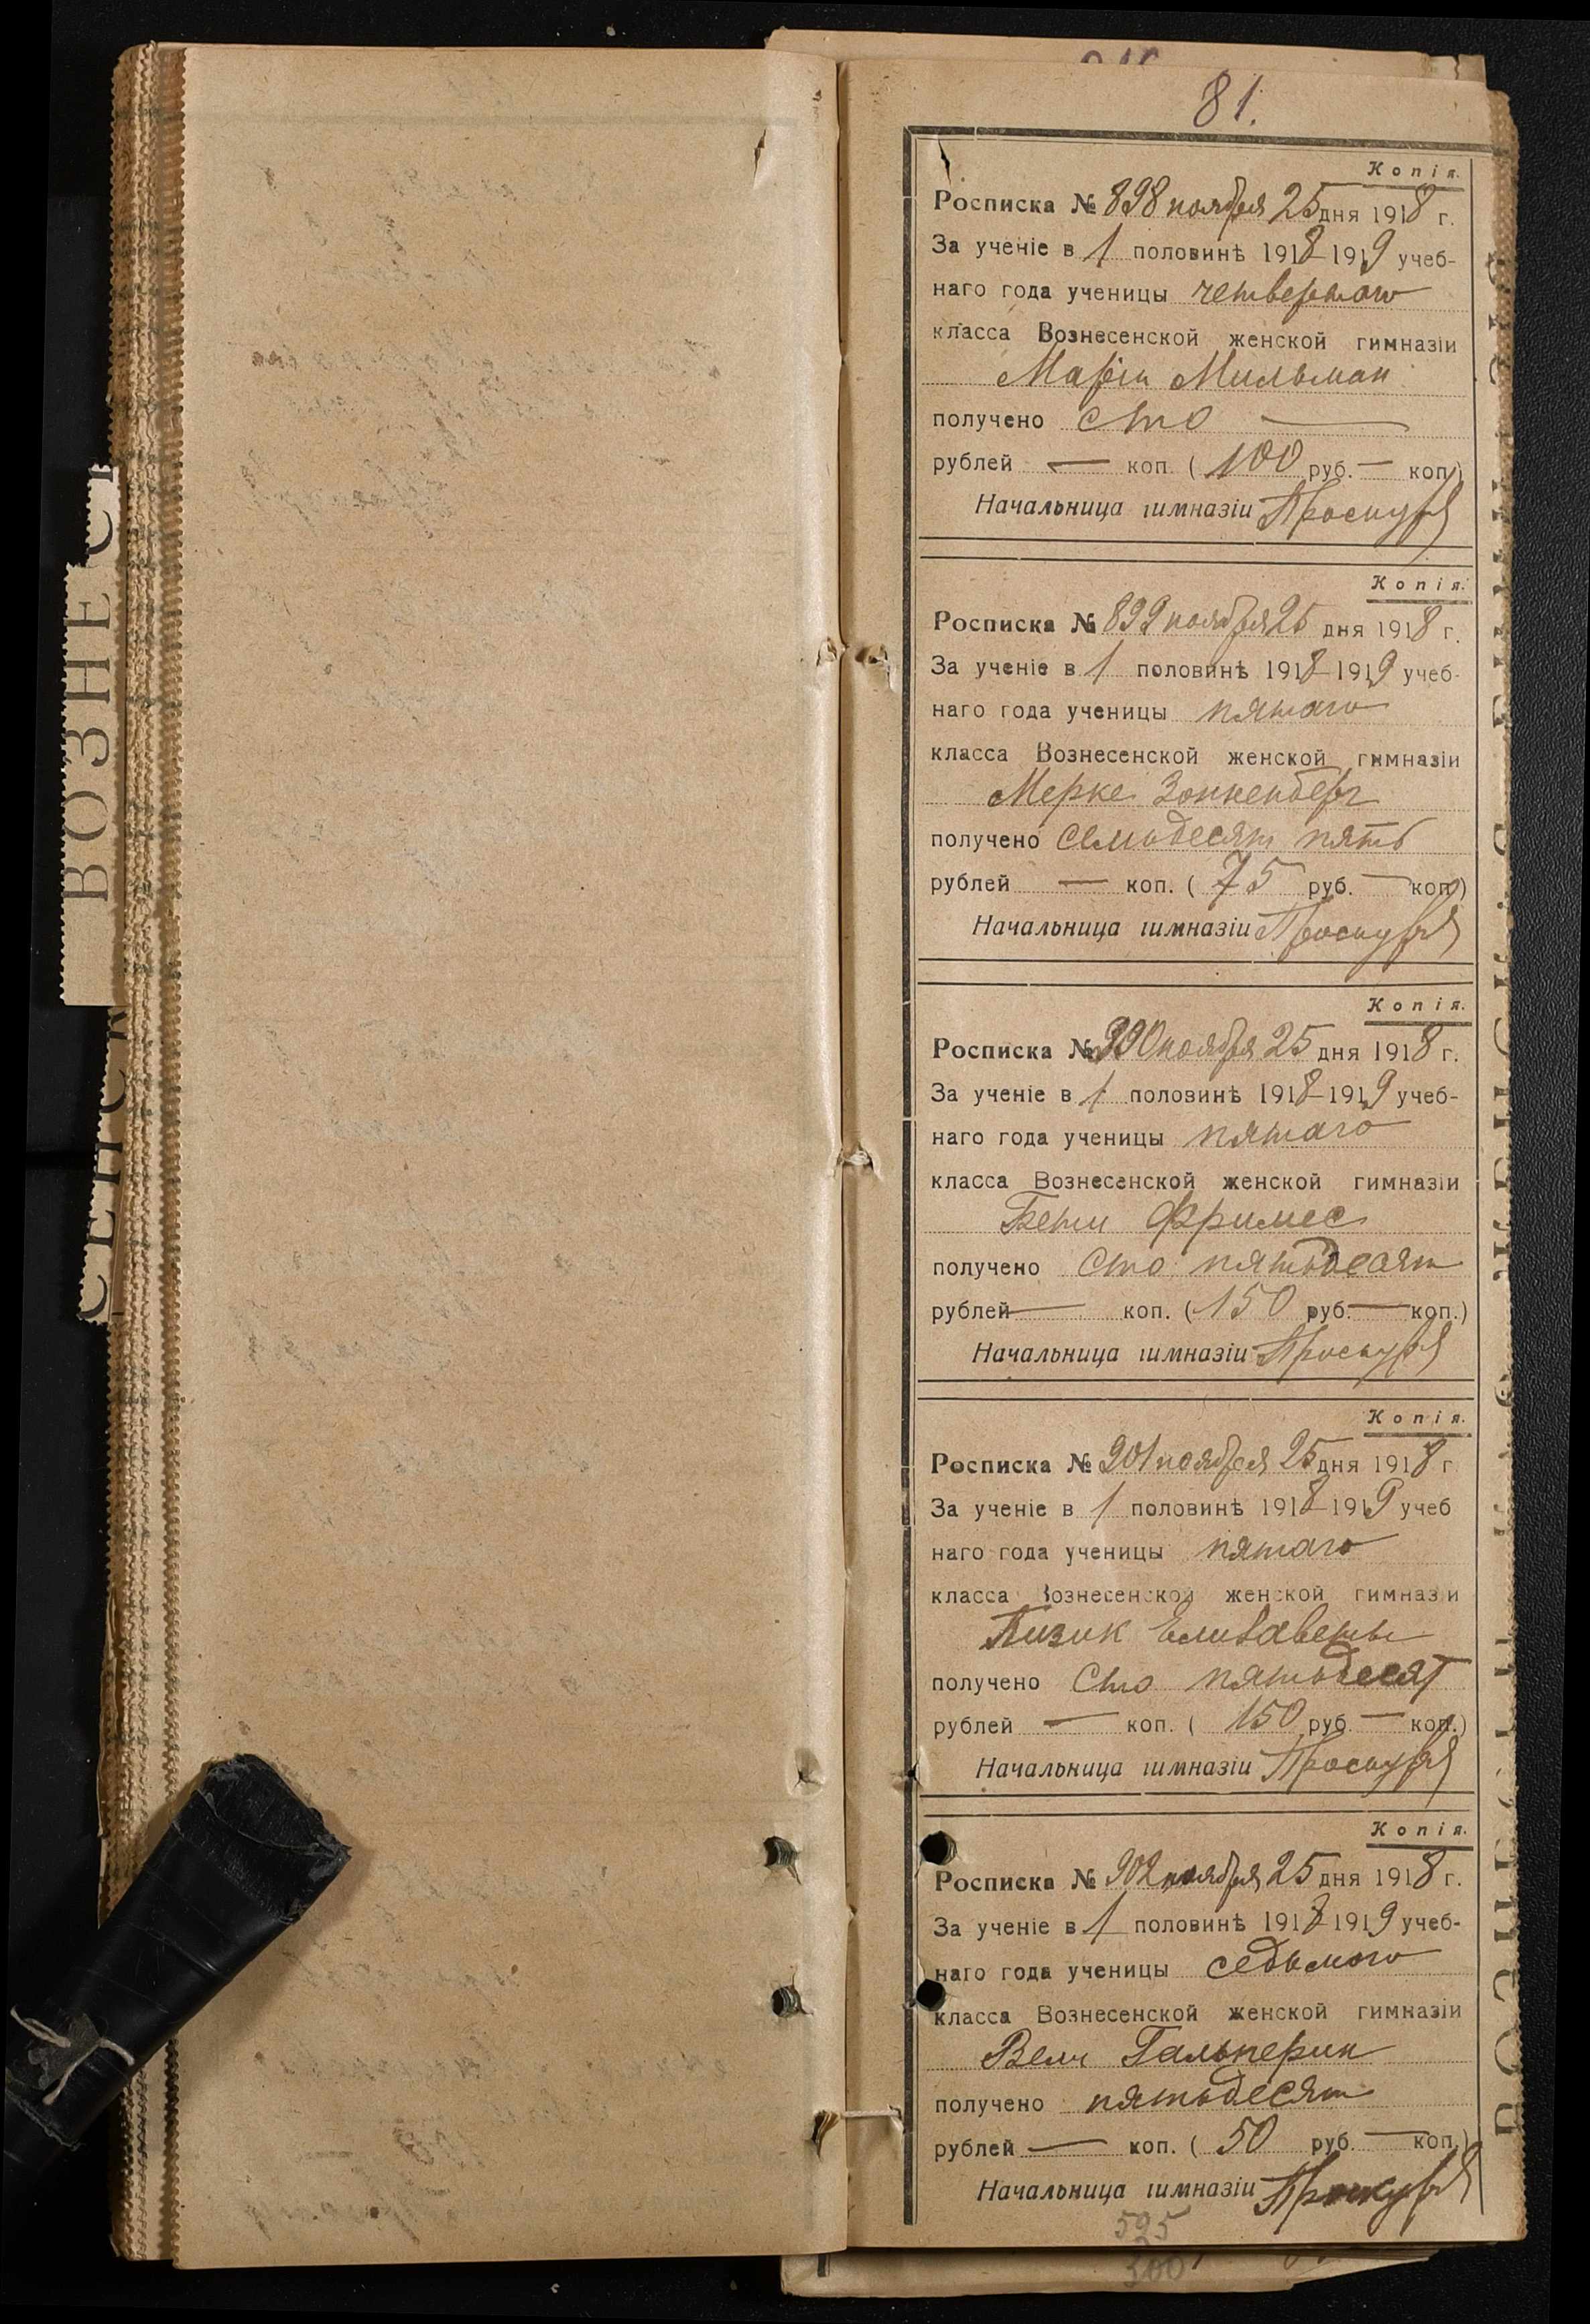 81.
Копія.
Росписка № 898 ноября 25 дня 1918 г.
За ученіе в 1 половинѣ 1918-1919 учеб-
наго года ученицы четвертаго
класса Вознесенской женской гимназіи
Маріи Мильман
получено сто —
рублей — коп. ( 100 руб. — коп.)
Начальница гимназіи Проскуря
Копія.
Росписка № 899 ноября 25 дня 1918 г.
За ученіе в 1 половинѣ 1918-1919 учеб-
наго года ученицы пятаго
класса Вознесенской женской гимназіи
Мерке Зонненберг
получено семьдесят пять
рублей — коп. ( 75 руб. — коп.)
Начальница гимназіи Проскуря
Копія.
Росписка № 900 ноября 25 дня 1918 г.
За ученіе в 1 половинѣ 1918-1919 учеб-
наго года ученицы пятаго
класса Вознесенской женской гимназіи
Бети Фримес
получено сто пятьдесят
рублей — коп. ( 150 руб. — коп.)
Начальница гимназіи Проскуря
Копія.
Росписка № 901 ноября 25 дня 1918 г
За ученіе в 1 половинѣ 1918-1919 учеб
наго года ученицы пятаго
класса Вознесенской женской гимназіи
Пизик Елизаветы
получено сто пятьдесят
рублей — коп. ( 150 руб — коп.)
Начальница гимназіи Проскуря
Копія.
Росписка № 902 ноября 25 дня 1918 г.
За ученіе в 1 половинѣ 1918-1919 учеб-
наго года ученицы седьмого
класса Вознесенской женской гимназіи
Вели Гальперин
получено пятьдесят
рублей — коп. ( 50 руб. — коп.)
Начальница гимназіи Проскуря
525
300
ВОЗНЕС